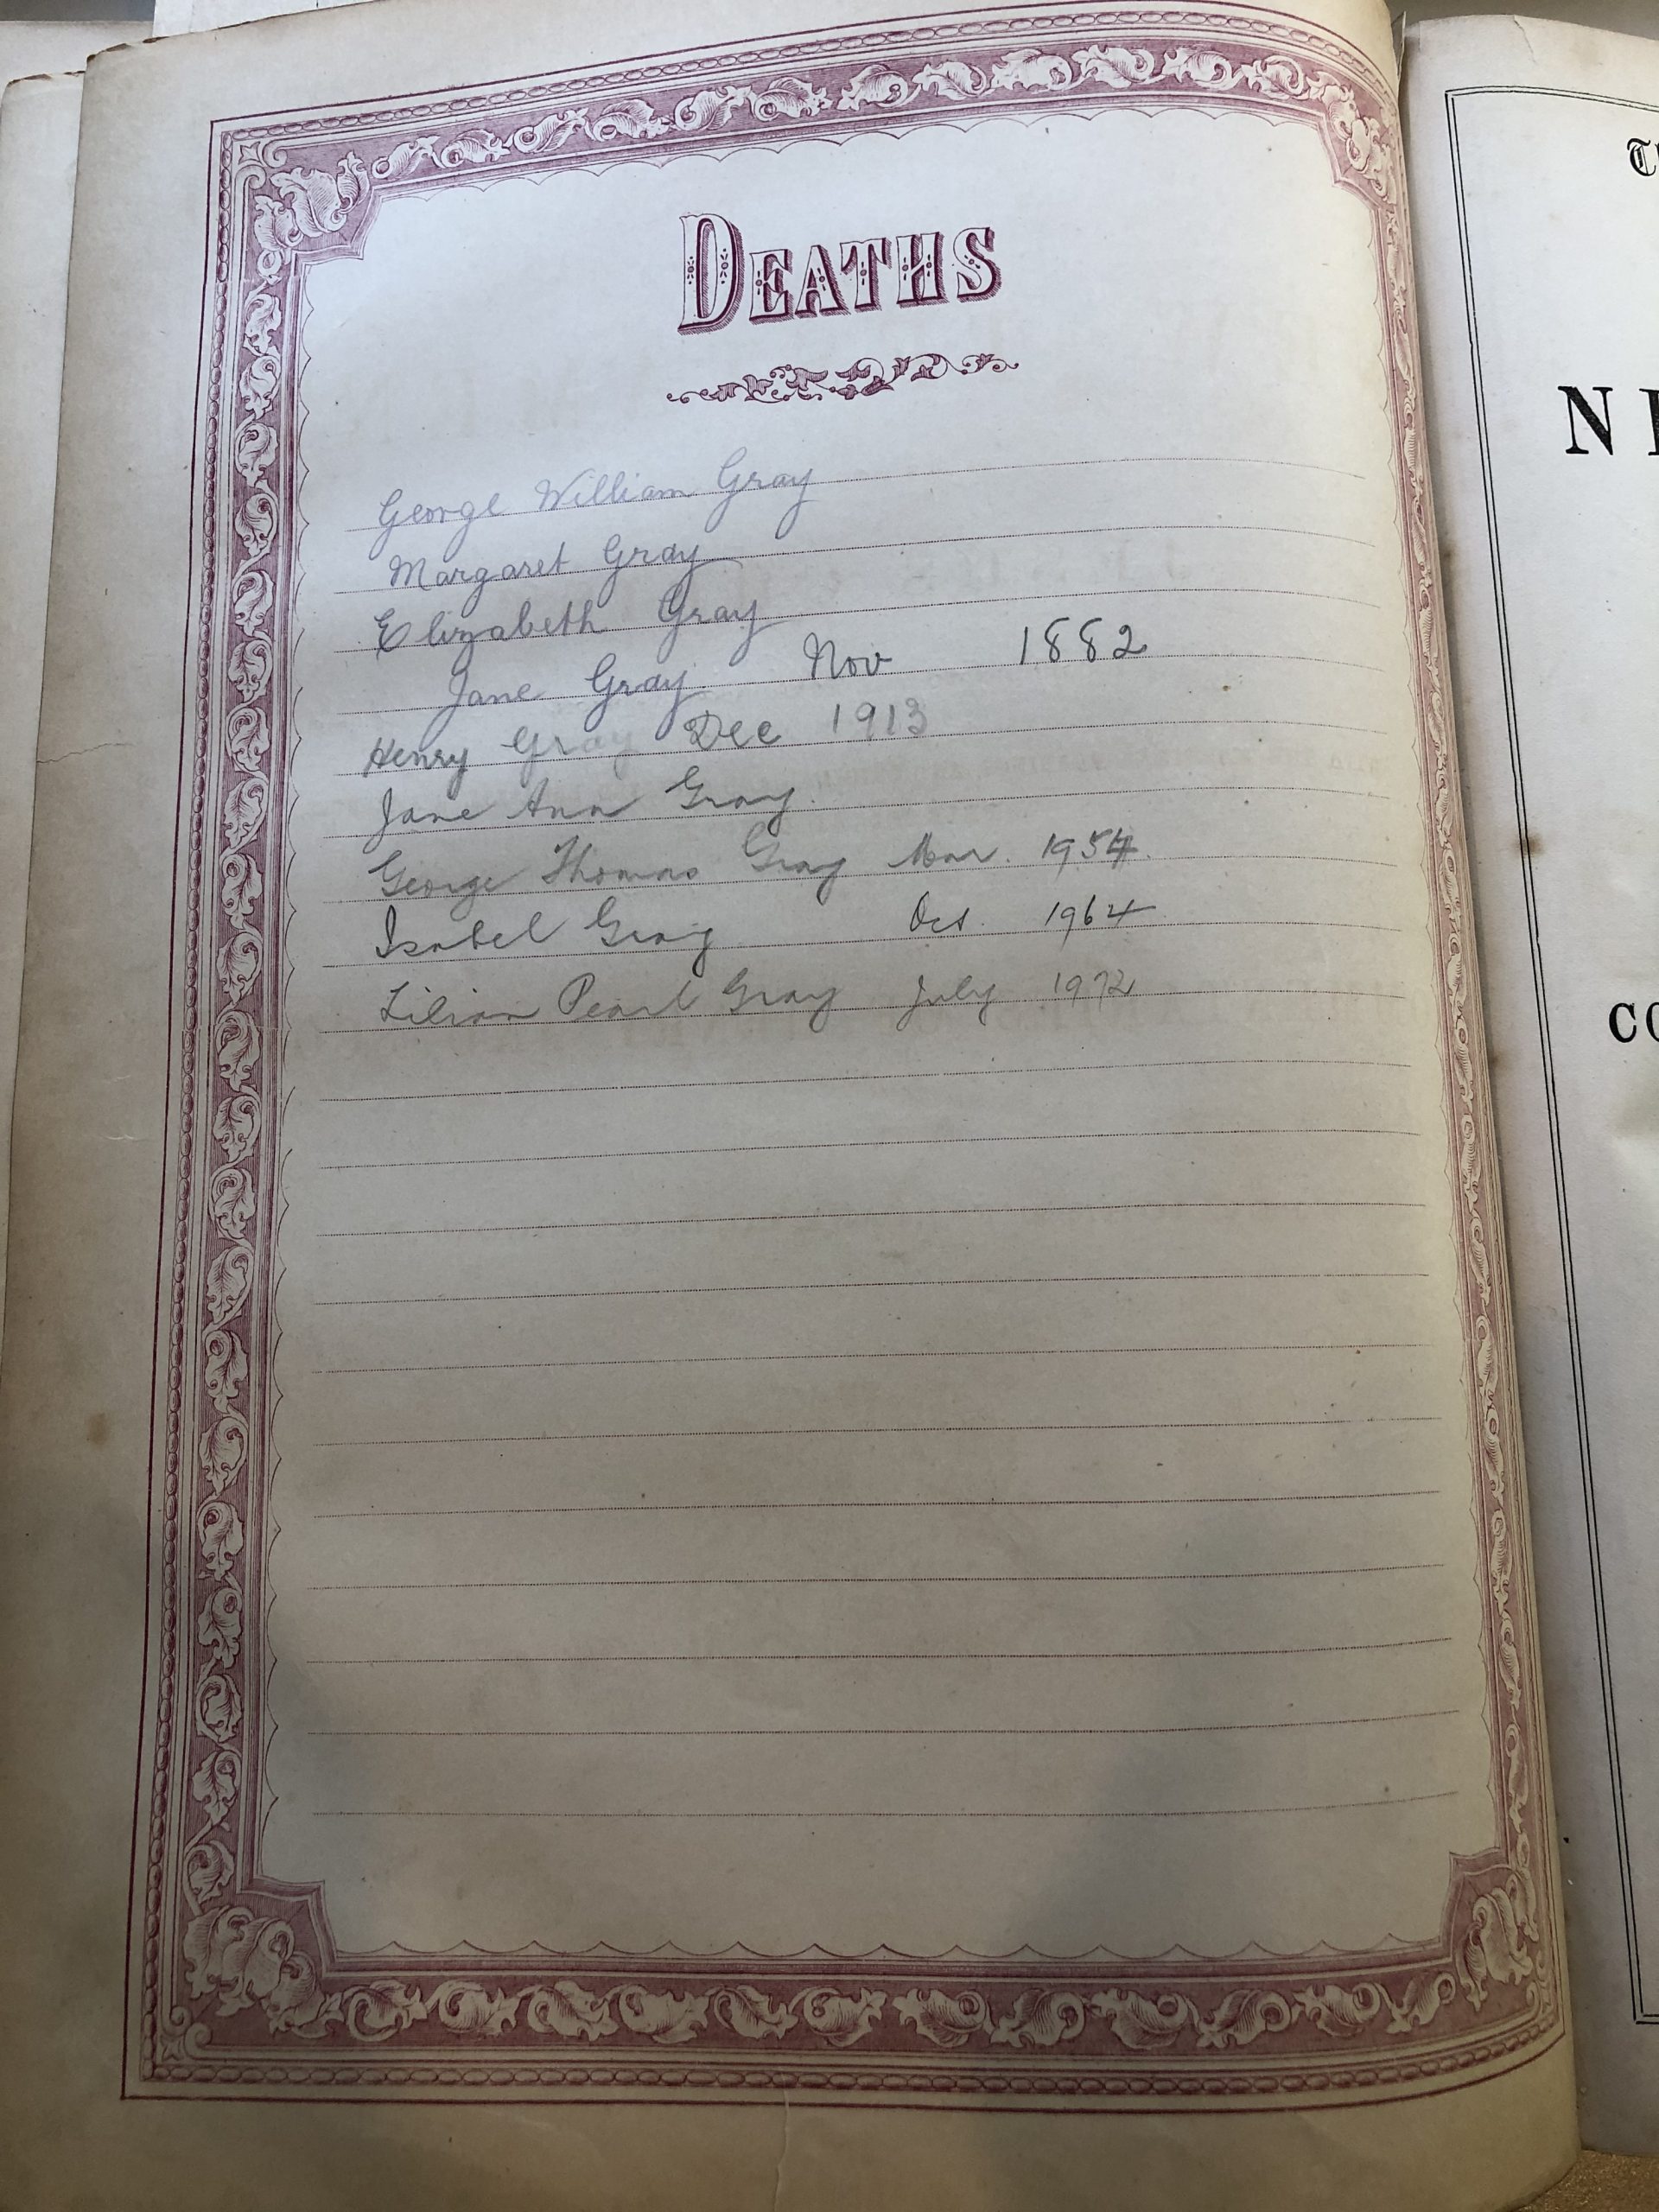 DEATHS
George William Gray
Margaret Gray
Elizabeth Gray
Jane Gray. Nov 1882
Henry Gray Dec 1913
Jane Ann Gray.
George Thomas Gray Mar. 1954.
Isabel Gray Oct. 1964
Lilian Pearl Gray July 1972